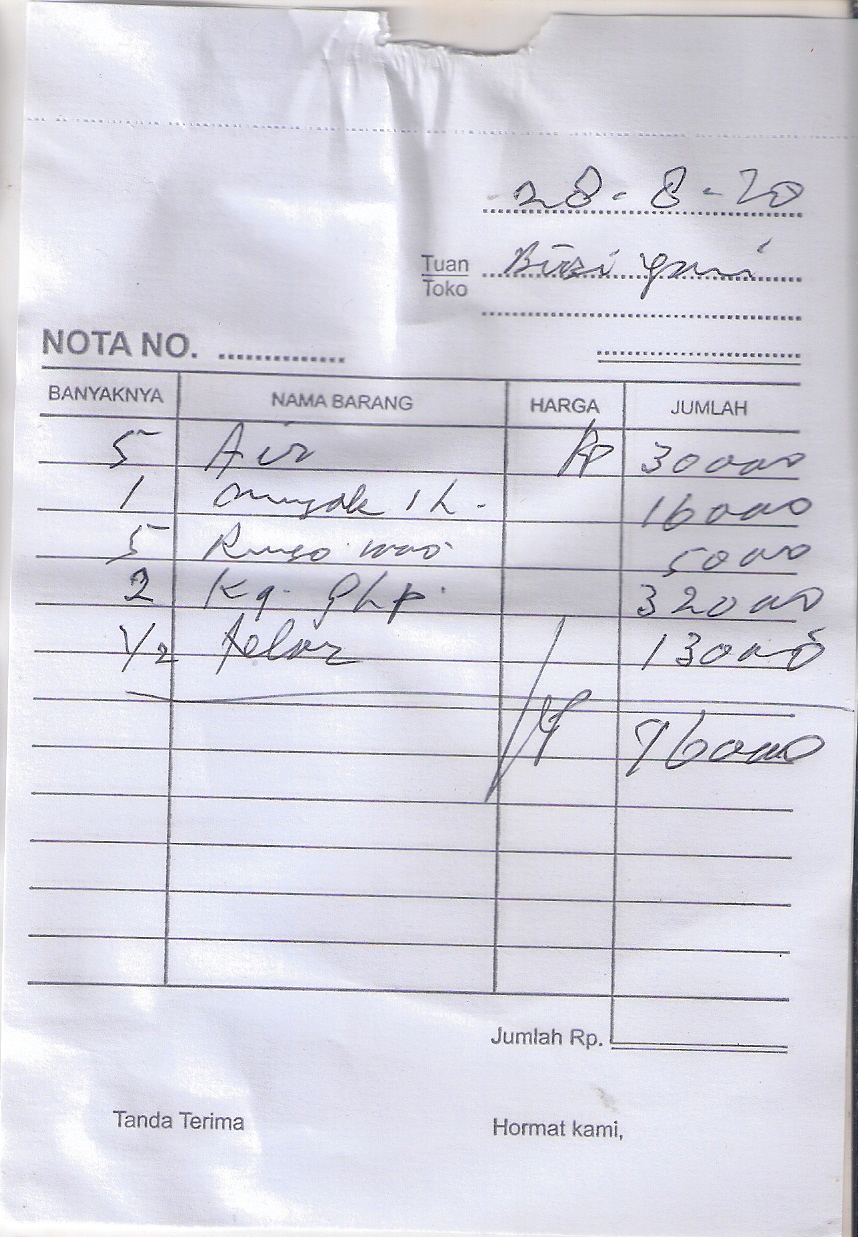 28-8-20
Tuan
Toko
NOTA NO.
BANYAKNYA NAMA BARANG HARGA JUMLAH
5 Air Rp 30000
1 minyak 1 L. 16000
5 Rinso 5000
2 Kg. 32000
1/2 telur 13000
96000
Jumlah Rp.
Tanda Terima Hormat kami,